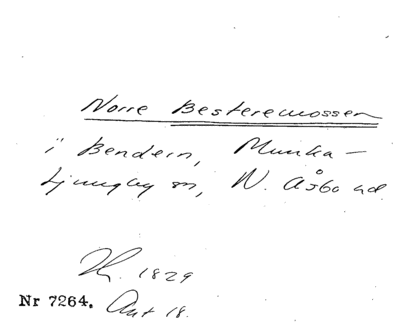 Norre Besteremossen
i Bendern, Munka-
Ljungby sn, N. Åsbo hd
1829
Nr 7264. Akt 18.